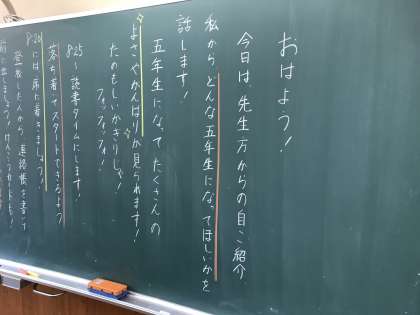 おはよう!
今日は、先生方からの自こ紹介
私からどんな五年生になってほしいかを
話します!
五年生になってたくさんの
よさやがんばりが見られます!
たのもしいかぎりじゃ!
フォッフォッフォ!
8:25〜読書タイムにします!
落ち着いてスタートできるよう
8:20には席に着きましょう!
登校した人から、連絡帳を書いて
前に出しましょう。けんこうカードも!